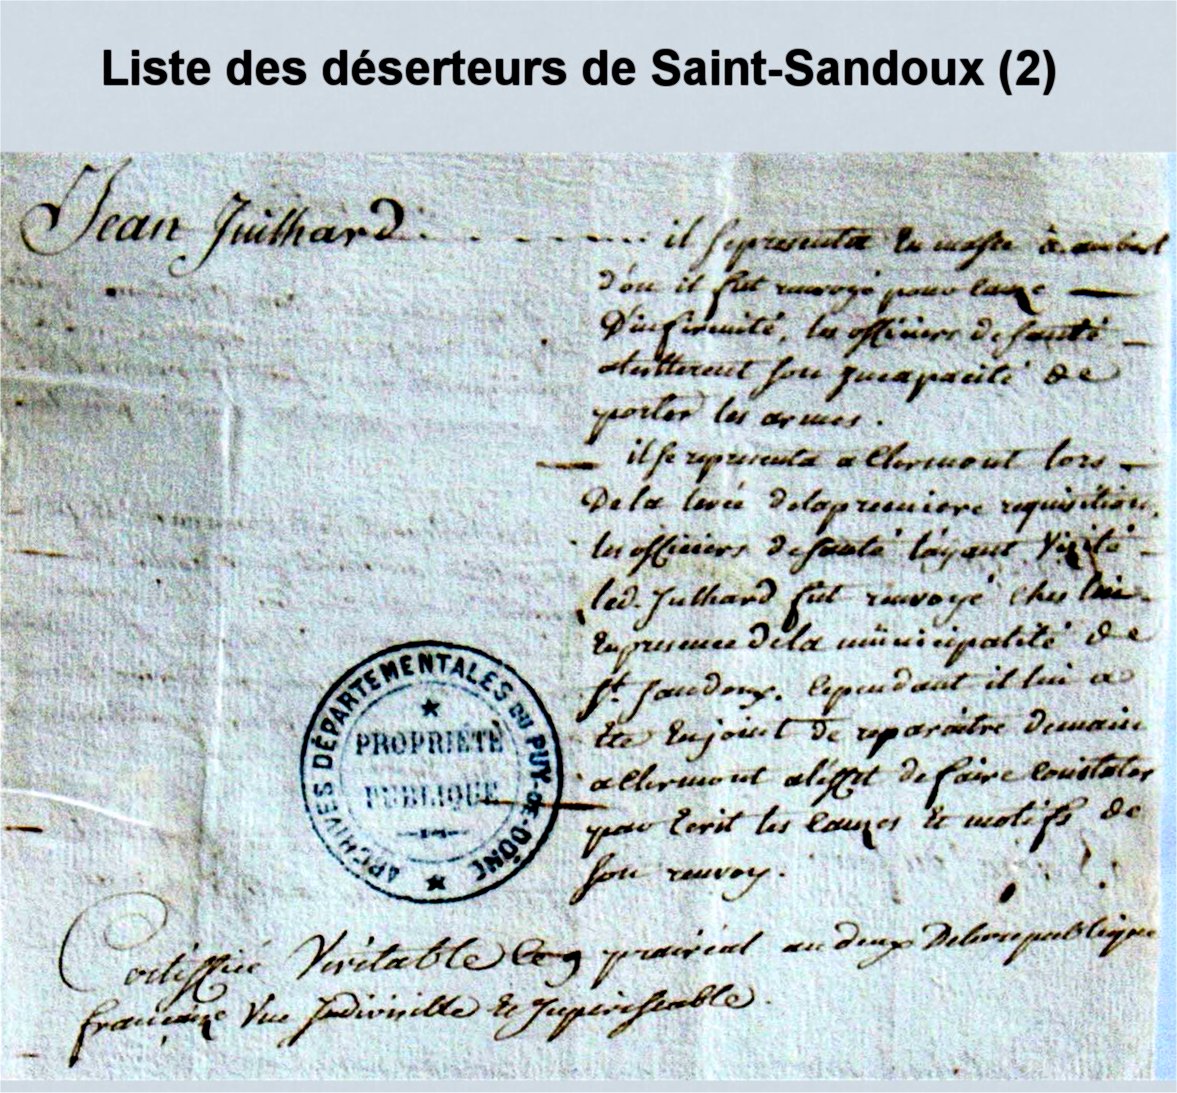 Liste des déserteurs de Saint-Sandoux (2)
Jean Juilhard . . . . . . . . il se presenta en masse à ambert
d'ou il fut renvoyé pour cauze
D'infirmité, les officiers de santé
attesterent son incapacité de
porter les armes.
il se represente a Clermont lors
De la levée de la premiere requisition,
les officiers de santé l'ayant Vizité
led. Julhard fut renvoyé ches lui
En presence de la municipalité de
St Sandoux. Cependant il lui a
Ete Enjoint de reparaitre demain
a Clermont a l'effet de faire Constater
par Ecrit les Cauzes Et motifs de
son renvoy.
ARCHIVES DÉPARTEMENTALES DU PUY-DE-DÔME
PROPRIÉTÉ
PUBLIQUE
Certiffié Véritable Ce 9 prairéal an deux De la republique
francaize Une Indivisible Et Imperissable.